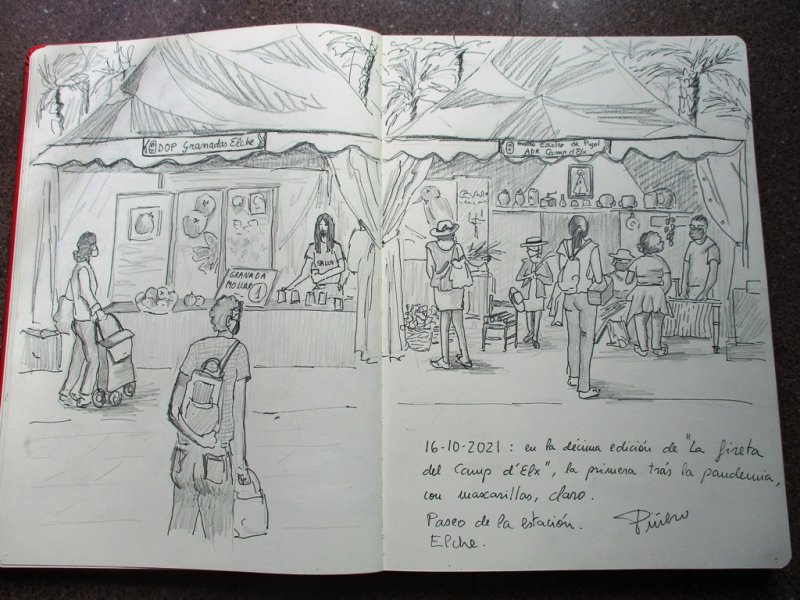 DOP Granadas Elche
Escolar de Pujol
ADR Camp d'Elx
SALUD
GRANADA
MOLLAR
1
16-10-2021: en la décima edición de "La fireta
del Camp d'Elx", la primera trás la pandemia,
con mascarillas, claro.
Paseo de la estación.
Elche.